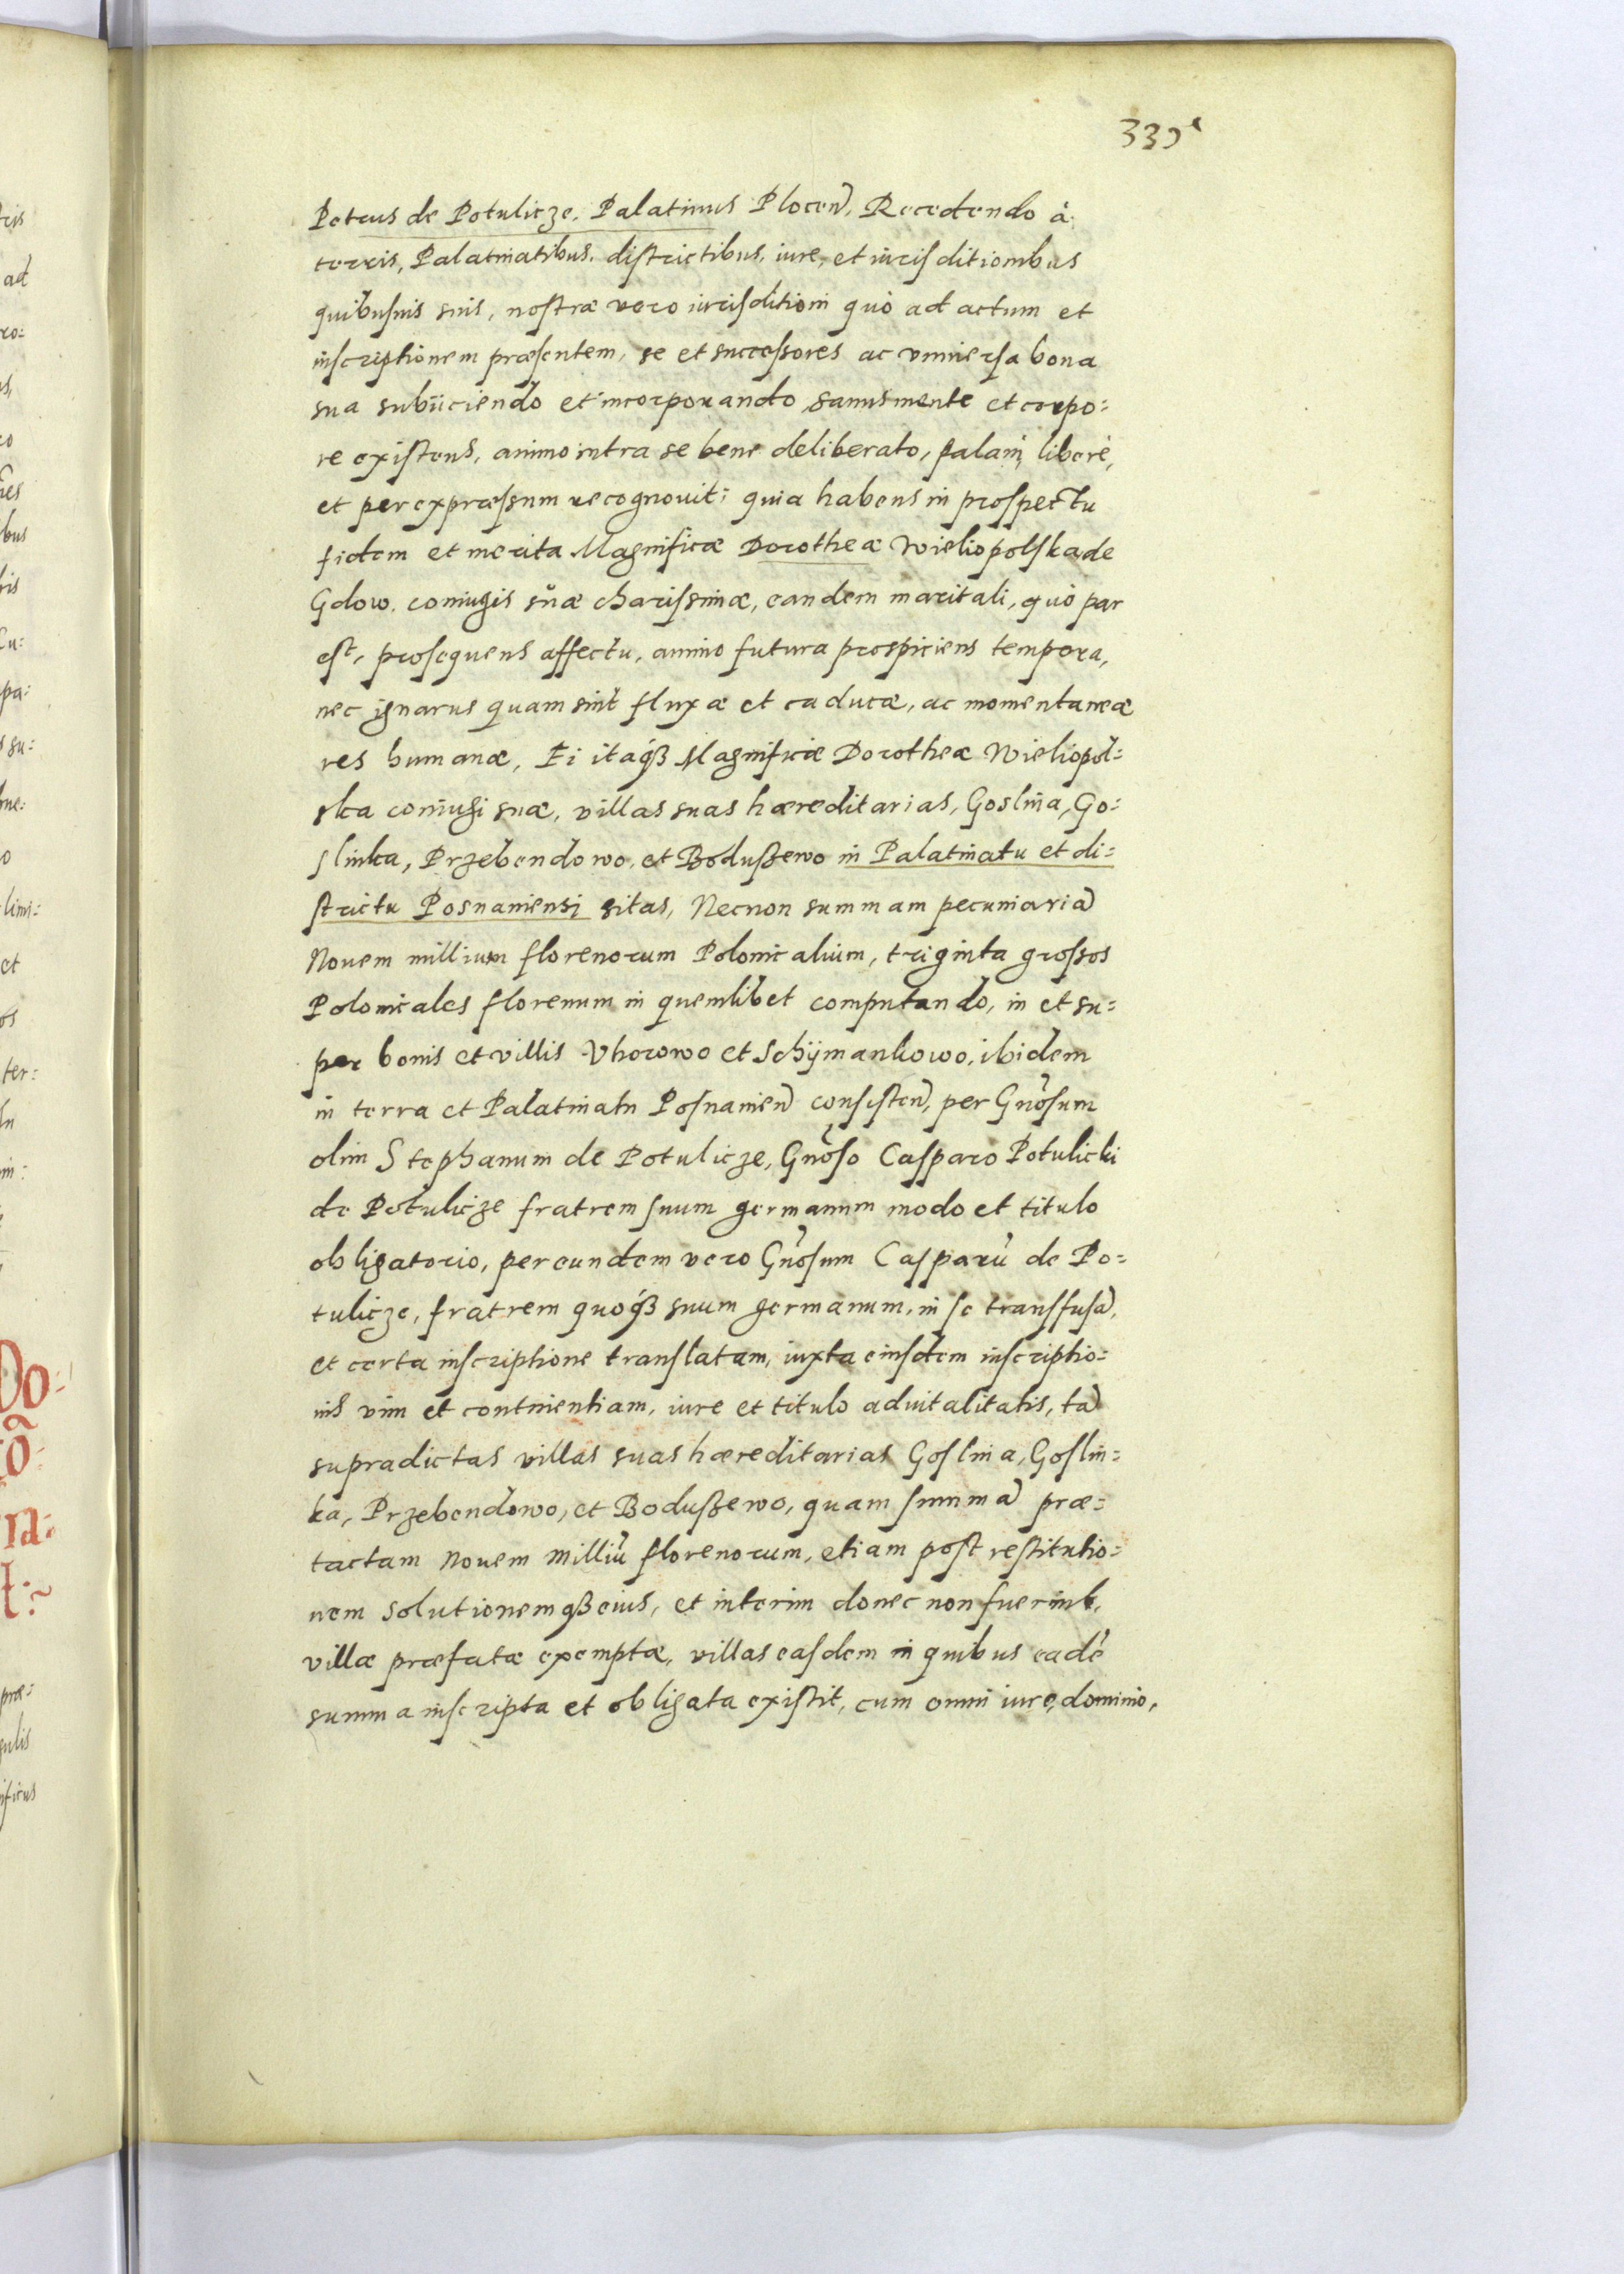 339
Petrus de Potulicze. Palatinus Plocen̄. Recedendo à
terris, Palatinatibus. districtibus. iure, et iurisditionibus
quibusuis suis, nostræ vero iurisditioni quò ad actum et
inscriptionem præsentem, se et successores ac vniuersa bona
sua subiiciendo et incorporando, sanus mente et corpo:
re existens, animo intra se bene deliberato, palam, liberè,
et per expræssum recognouit: quia habens in prospectu
fidem et merita Magnificæ Dorotheæ Wieliopolska de
Gdow. coniugis suæ charissimæ, eandem maritali, quò par
est, prosequens affectu, animo futura prospiciens tempora,
nec ignarus quam sint fluxæ et caducæ, ac momentaneæ
res humanæ, Ei itaqß Magnificæ Dorotheæ Wieliopol:
ska coniugi suæ, villas suas hæreditarias, Goslina, Go:
slinka, Przebendowo, et Bodußewo in Palatinatu et di:
strictu Posnaniensi sitas, Necnon summam pecuniariā
Nouem millium florenorum Polonicalium, triginta grossos
Polonicales florenum in quemlibet computando, in et su:
per bonis et villis Vhorowo et Schÿmankowo, ibidem
in terra et Palatinatu Posnanien̄ consisten̄, per Gnōsum
olim Stephanum de Potulicze, Gnōso Casparo Potulicki
de Potulicze fratrem suum germanum modo et titulo
obligatorio, per eundem vero Gnōsum Casparū de Po:
tulicze, fratrem quoqß suum germanum, in se transfusā,
et certa inscriptione translatam, iuxta eiusdem inscriptio:
nis vim et continentiam, iure et titulo aduitalitatis, tā
supradictas villas suas hæreditarias Goslina, Goslin:
ka, Przebendowo, et Bodußewo, quam summā præ:
tactam Nouem Milliū florenorum, etiam post restitutio:
nem solutionemqß eius, et interim donec non fuerint,
villæ præfatæ exemptæ, villas easdem in quibus eadē
summa inscripta et obligata existit, cum omni iure, dominio,